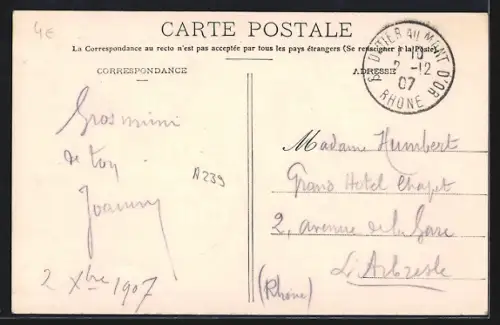 4€
CARTE POSTALE
La Correspondance au recto n'est pas acceptée par tous les pays étrangers (Se renseigner à la Poste)
CORRESPONDANCE
ADRESSE
St DIDIER AU MONT D'OR
2 -12
07
RHONE
Gros mimi
de ton
Joanny
2 Xbre 1907
A239
Madame Humbert
Grand Hotel Chapet
2, avenue de la Gare
L'Arbresle
(Rhône)